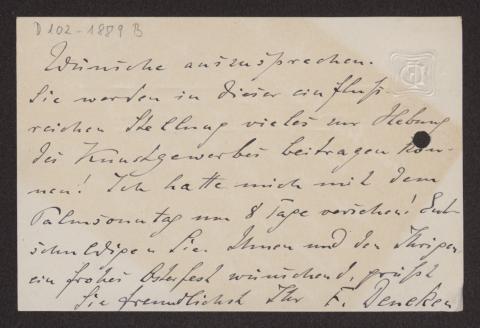 D 102-1889 B
Wünsche auszusprechen.
Sie werden in dieser einfluß-
reichen Stellung vieles zur Hebung
des Kunstgewerbes beitragen kön-
nen! Ich hatte mich mit dem
Palmsonntag um 8 Tage versehen! Ent
schuldigen Sie. Ihnen und den Ihrigen
ein frohes Osterfest wünschend, grüßt
Sie freundlichst Ihr F. Deneken